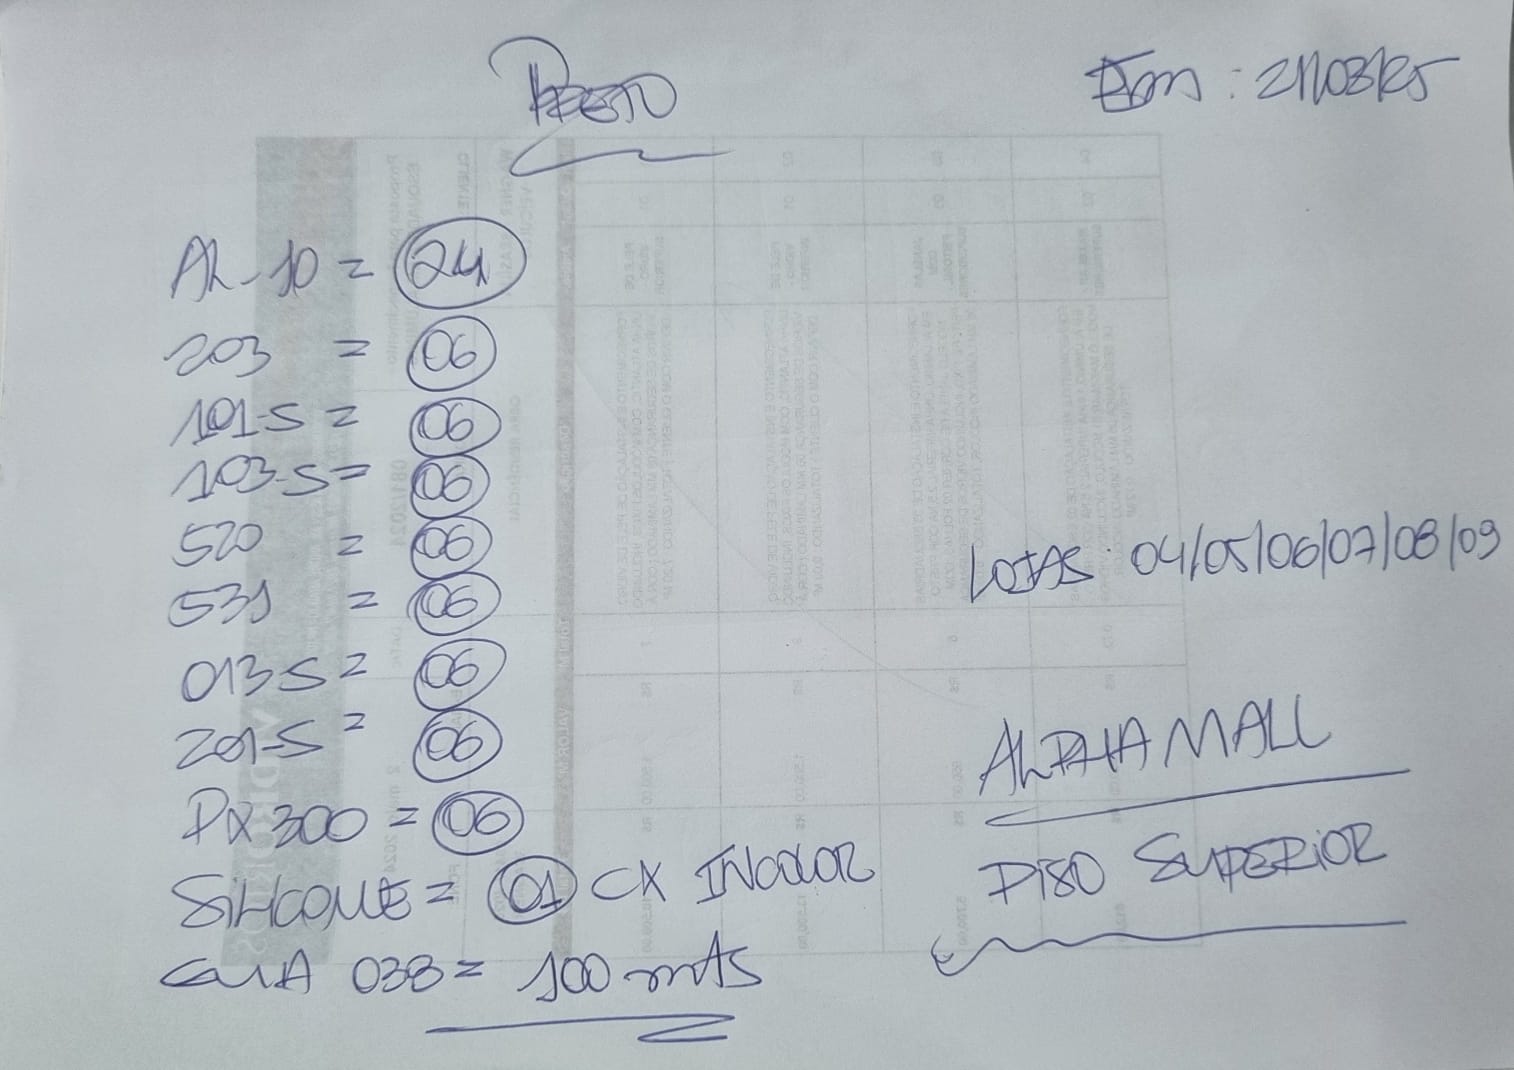 PRETO
Em : 21/03/25
AL-10 = 24
203 = 06
101-S = 06
103-S = 06
520 = 06
531 = 06
013-S = 06
201-S = 06
PX 300 = 06
SILICONE = 01 CX INCOLOR
GUIA 038 = 100 mts
LOJAS: 04/05/06/07/08/09
ALPHA MALL
PISO SUPERIOR